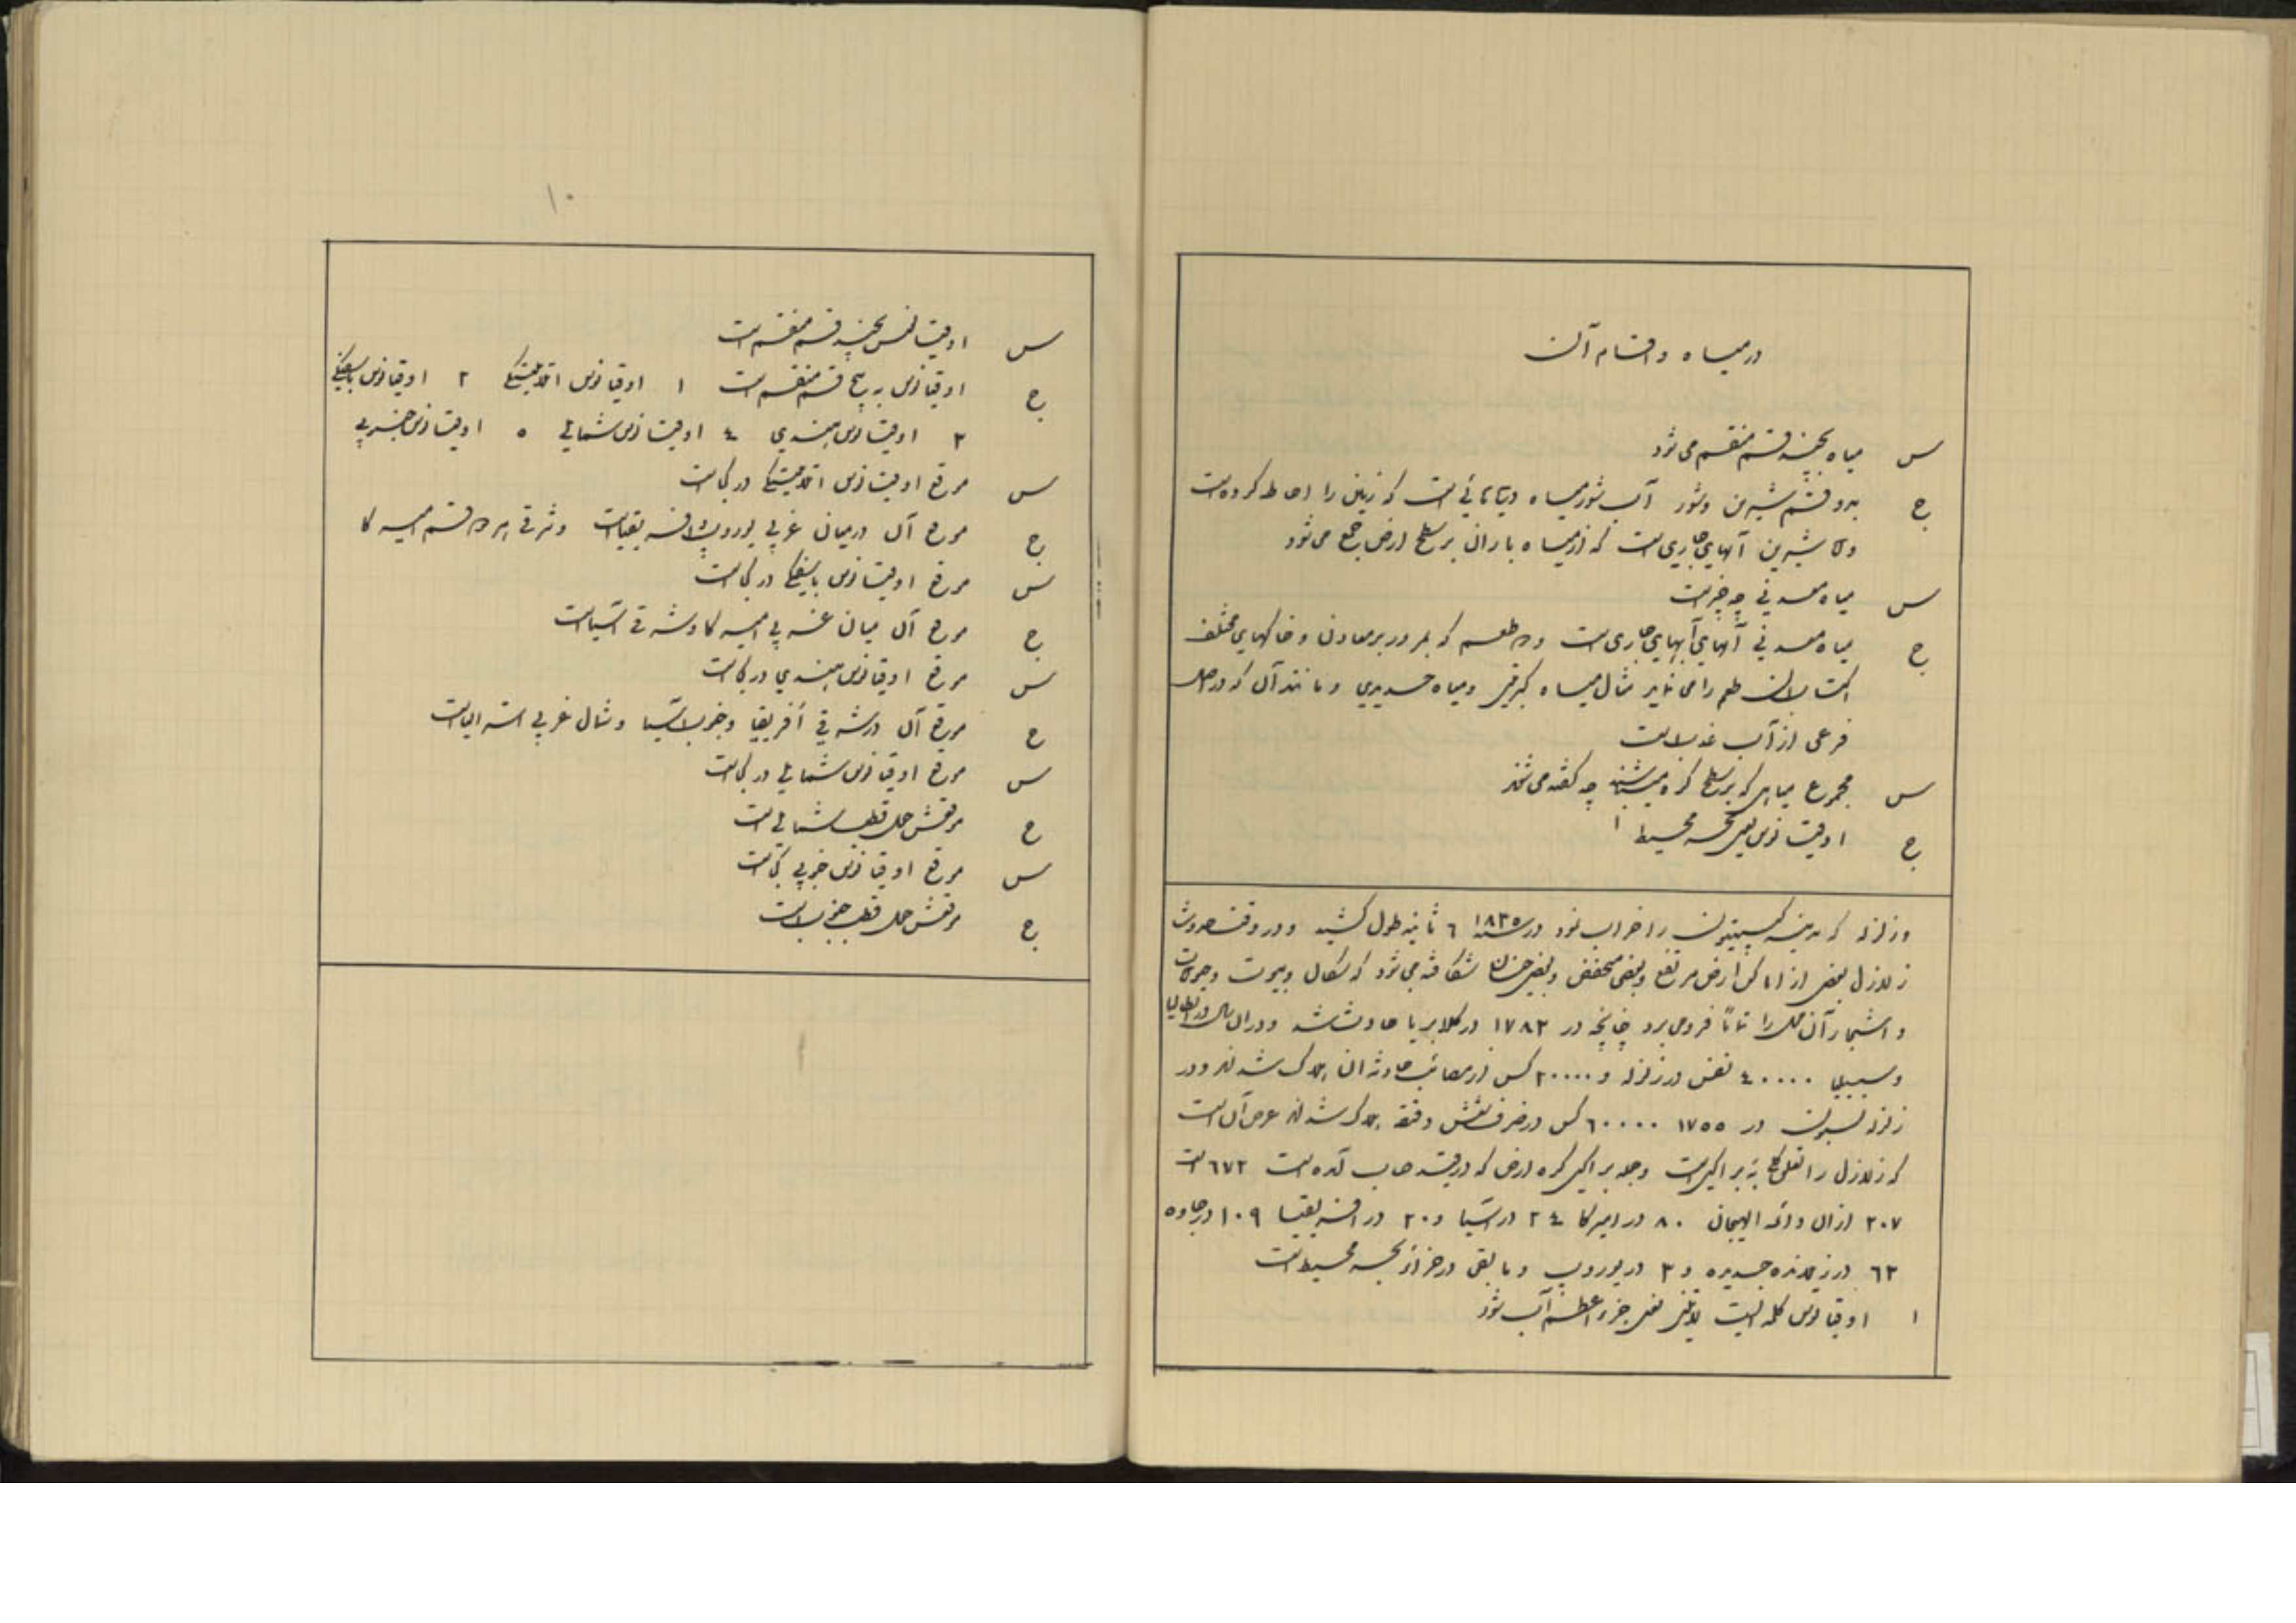 در میاه و اقسام آن
س میاه بچند قسم منقسم می شود
ج بدو قسم شیرین و شور آب شور میاه دریاهائی است که زمین را احاطه کرده است
و شیرین آبهای جاری است که از میاه باران بر سطح ارض جمع می شود
س میاه معدنی چه چیز است
ج میاه معدنی آبهای جاری است که بمرور بر معادن و خاکهای مختلف
اکتساب طعم را می نماید مثال میاه کبریتی و میاه حدیدی و مانند آن که در اصل
فرعی از آب است
س مجموع میاهی که بر سطح کره میباشند چه گفته می شوند
ج اوقیانوس یعنی بحر محیط ۱
و زلزله که مدینه را خراب نمود در سنه ۱۸۳۵ ٦ ثانیه طول کشید و در وقت حدوث
زلازل بعضی از اماکن ارض مرتفع و بعضی منخفض و بعضی شکافته می شود که و بیوت و
و اشجار آن محل را فرو می برد چنانچه در ۱۷۸۳ در کلابریا حادث شد و در آن سال در ایطالیا
و سیسیلیا ٤۰۰۰۰ نفس در زلزله و ۲۰۰۰۰ کس از مصائب حادثه آن هلاک شدند و در
زلزله لسبون در ۱۷٥٥ ٦۰۰۰۰ کس در ظرف شش دقیقه هلاک شدند
که زلازل را به براکین است و جمله براکین کره ارض که در حساب آمده است ٦۷۲ است
۲۰۷ از آن دائم الهیجان ۸۰ در امیرکا ۲٤ در آسیا و ۲۰ در افریقیا ۱۰۹ در جاوه
٦۲ در جدیده و ۳ در یوروپ و مابقی در جزائر بحر محیط است
۱ اوقیانوس کلمه ایست یعنی جزء اعظم آب شور
۱۰
س اوقیانوس بچند قسم منقسم است
ج اوقیانوس به پنج قسم منقسم است ۱ اوقیانوس اتلانتیکی ۲ اوقیانوس پاسفیکی
۳ اوقیانوس هندی ٤ اوقیانوس شمالی ٥ اوقیانوس جنوبی
س موقع اوقیانوس اتلانتیکی در کجا است
ج موقع آن در میان غربی یوروپ و افریقیا است و شرقی هر دو قسم امیرکا
س موقع اوقیانوس پاسفیکی در کجا است
ج موقع آن میان غربی امیرکا و شرقی آسیا است
س موقع اوقیانوس هندی در کجا است
ج موقع آن در شرقی افریقیا و جنوب آسیا و شمال غربی استرالیا است
س موقع اوقیانوس شمالی در کجا است
ج موقعش حول قطب شمالی است
س موقع اوقیانوس جنوبی کجا است
ج موقعش حول قطب جنوب است